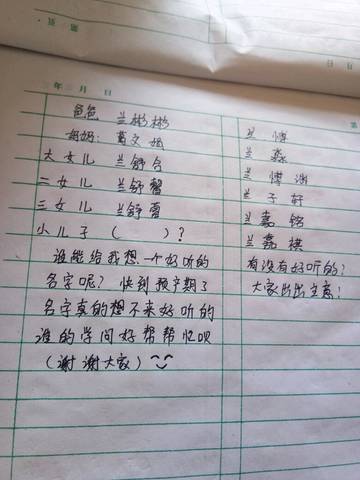 年 月 日
爸爸 兰彬彬
妈妈: 葛文娟
大女儿 兰舒
二女儿 兰舒馨
三女儿 兰舒蕾
小儿子 ( )?
谁能给我想一个好听的
名字呢? 快到预产期了
名字真的想不来好听的
谁的学问好帮帮忙呗
(谢谢大家)
兰 博
兰 淼
兰 博
兰 子轩
兰嘉铭
兰磊祺
有没有好听的?
大家出出主意!